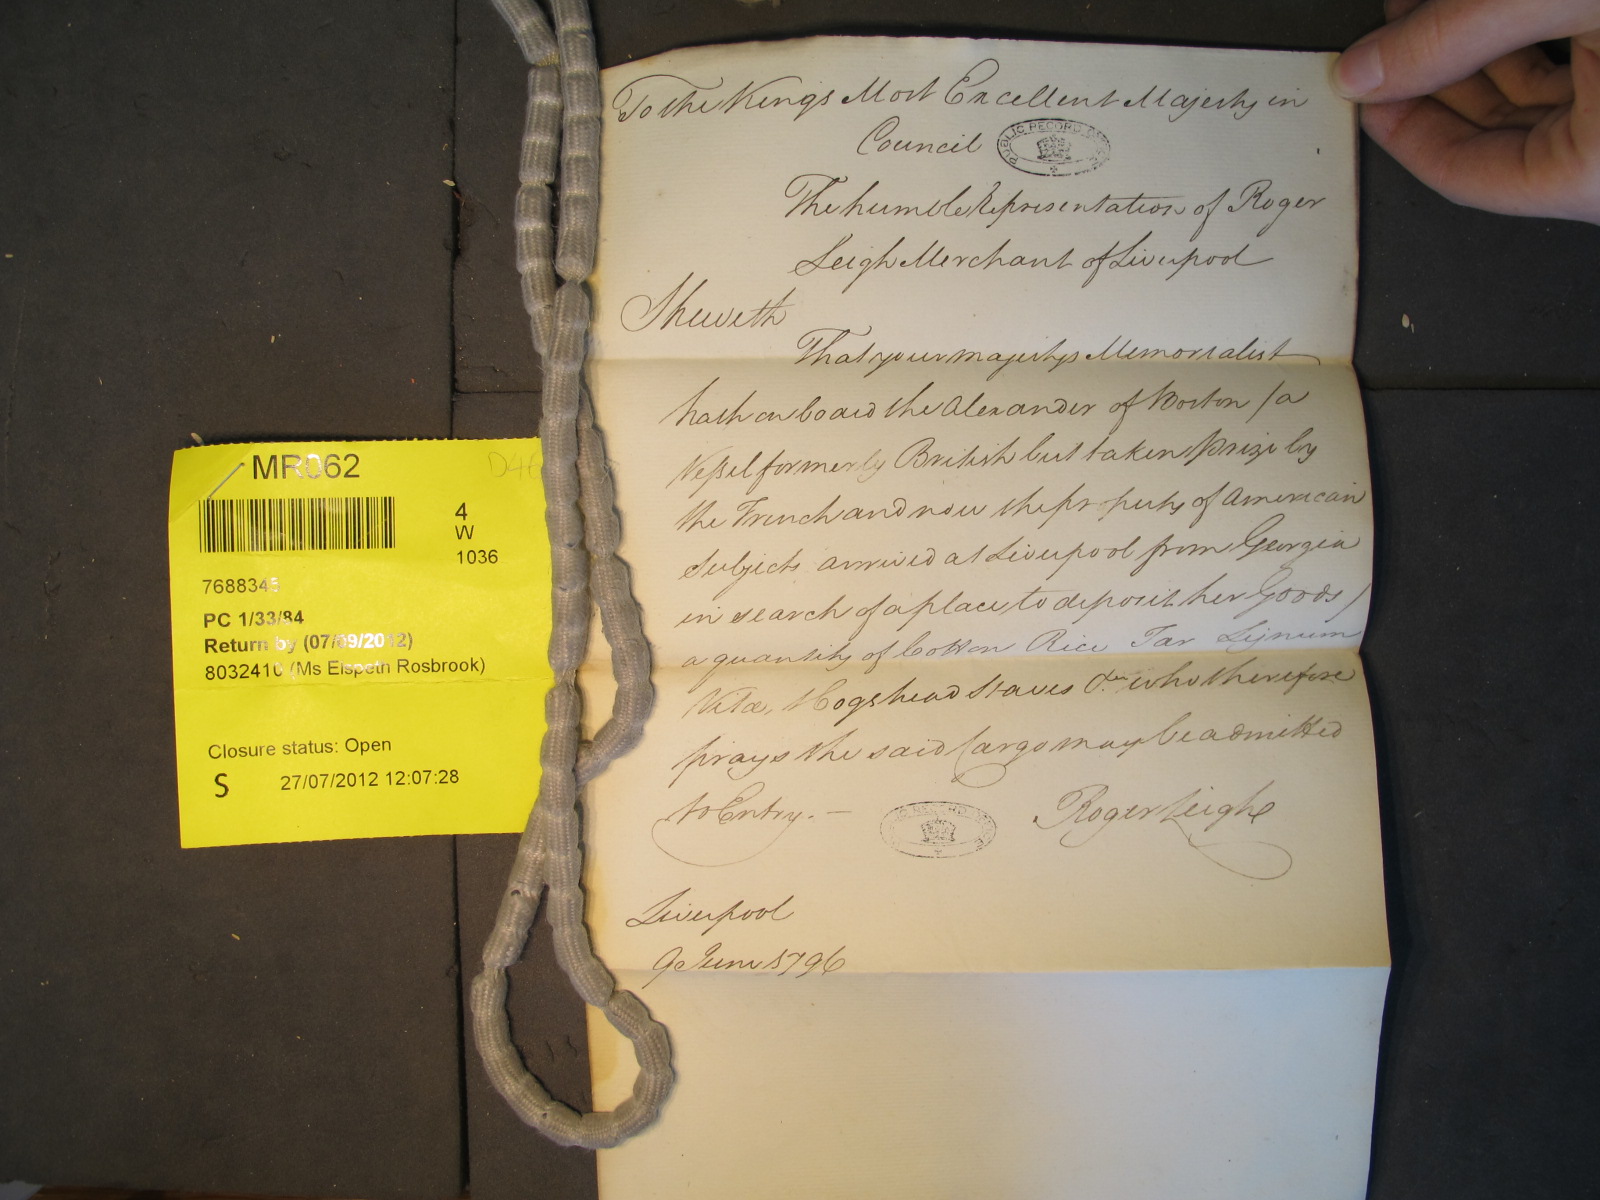 To the Kings Most Excellent Majesty in
Council
PUBLIC RECORD OFFICE
The humble Representation of Roger
Leigh Merchant of Liverpool
Sheweth
That your majestys Memorialist
hath on board the Alexander of Boston /a
Vessel formerly British but taken Prize by
the French and now the property of American
Subjects arrived at Liverpool from Georgia
in search of a place to deposit her Goods /
a quantity of Cotton Rice Tar Lignum
Vitæ, Hogshead Staves &c who therefore
prays the said Cargo may be admitted
to Entry. —
PUBLIC RECORD OFFICE
Roger Leigh
Liverpool
9 June 1796
MR062
D46
4
W
1036
7688345
PC 1/33/84
Return by (07/09/2012)
8032410 (Ms Elspeth Rosbrook)
Closure status: Open
S 27/07/2012 12:07:28